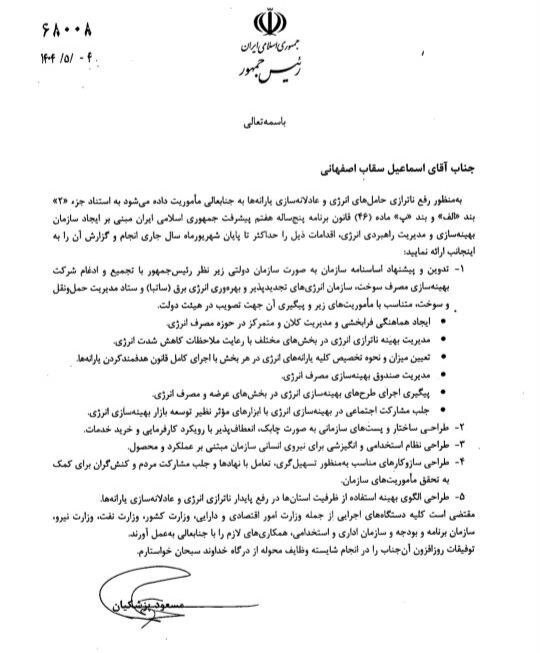 ۶۸۰۰۸
۱۴۰۴ /۵/ ۰۴
جمهوری اسلامی ایران
رئیس‌جمهور
باسمه‌تعالی
جناب آقای اسماعیل سقاب اصفهانی
به‌منظور رفع ناترازی حامل‌های انرژی و عادلانه‌سازی یارانه‌ها به جنابعالی مأموریت داده می‌شود به استناد جزء «۲»
بند «الف» و بند «پ» ماده (۴۶) قانون برنامه پنج‌ساله هفتم پیشرفت جمهوری اسلامی ایران مبنی بر ایجاد سازمان
بهینه‌سازی و مدیریت راهبردی انرژی، اقدامات ذیل را حداکثر تا پایان شهریورماه سال جاری انجام و گزارش آن را به
اینجانب ارائه نمایید:
۱- تدوین و پیشنهاد اساسنامه سازمان به صورت سازمان دولتی زیر نظر رئیس‌جمهور با تجمیع و ادغام شرکت
بهینه‌سازی مصرف سوخت، سازمان انرژی‌های تجدیدپذیر و بهره‌وری انرژی برق (ساتبا) و ستاد مدیریت حمل‌ونقل
و سوخت، متناسب با مأموریت‌های زیر و پیگیری آن جهت تصویب در هیئت دولت.
• ایجاد هماهنگی فرابخشی و مدیریت کلان و متمرکز در حوزه مصرف انرژی.
• مدیریت بهینه ناترازی انرژی در بخش‌های مختلف با رعایت ملاحظات کاهش شدت انرژی.
• تعیین میزان و نحوه تخصیص کلیه یارانه‌های انرژی در هر بخش با اجرای کامل قانون هدفمندکردن یارانه‌ها.
• مدیریت صندوق بهینه‌سازی مصرف انرژی.
• پیگیری اجرای طرح‌های بهینه‌سازی انرژی در بخش‌های عرضه و مصرف انرژی.
• جلب مشارکت اجتماعی در بهینه‌سازی انرژی با ابزارهای مؤثر نظیر توسعه بازار بهینه‌سازی انرژی.
۲- طراحی ساختار و پست‌های سازمانی به صورت چابک، انعطاف‌پذیر با رویکرد کارفرمایی و خرید خدمات.
۳- طراحی نظام استخدامی و انگیزشی برای نیروی انسانی سازمان مبتنی بر عملکرد و محصول.
۴- طراحی سازوکارهای مناسب به‌منظور تسهیل‌گری، تعامل با نهادها و جلب مشارکت مردم و کنش‌گران برای کمک
به تحقق مأموریت‌های سازمان.
۵- طراحی الگوی بهینه استفاده از ظرفیت استان‌ها در رفع پایدار ناترازی انرژی و عادلانه‌سازی یارانه‌ها.
مقتضی است کلیه دستگاه‌های اجرایی از جمله وزارت امور اقتصادی و دارایی، وزارت کشور، وزارت نفت، وزارت نیرو،
سازمان برنامه و بودجه و سازمان اداری و استخدامی، همکاری‌های لازم را با جنابعالی به‌عمل آورند.
توفیقات روزافزون آن‌جناب را در انجام شایسته وظایف محوله از درگاه خداوند سبحان خواستارم.
مسعود پزشکیان